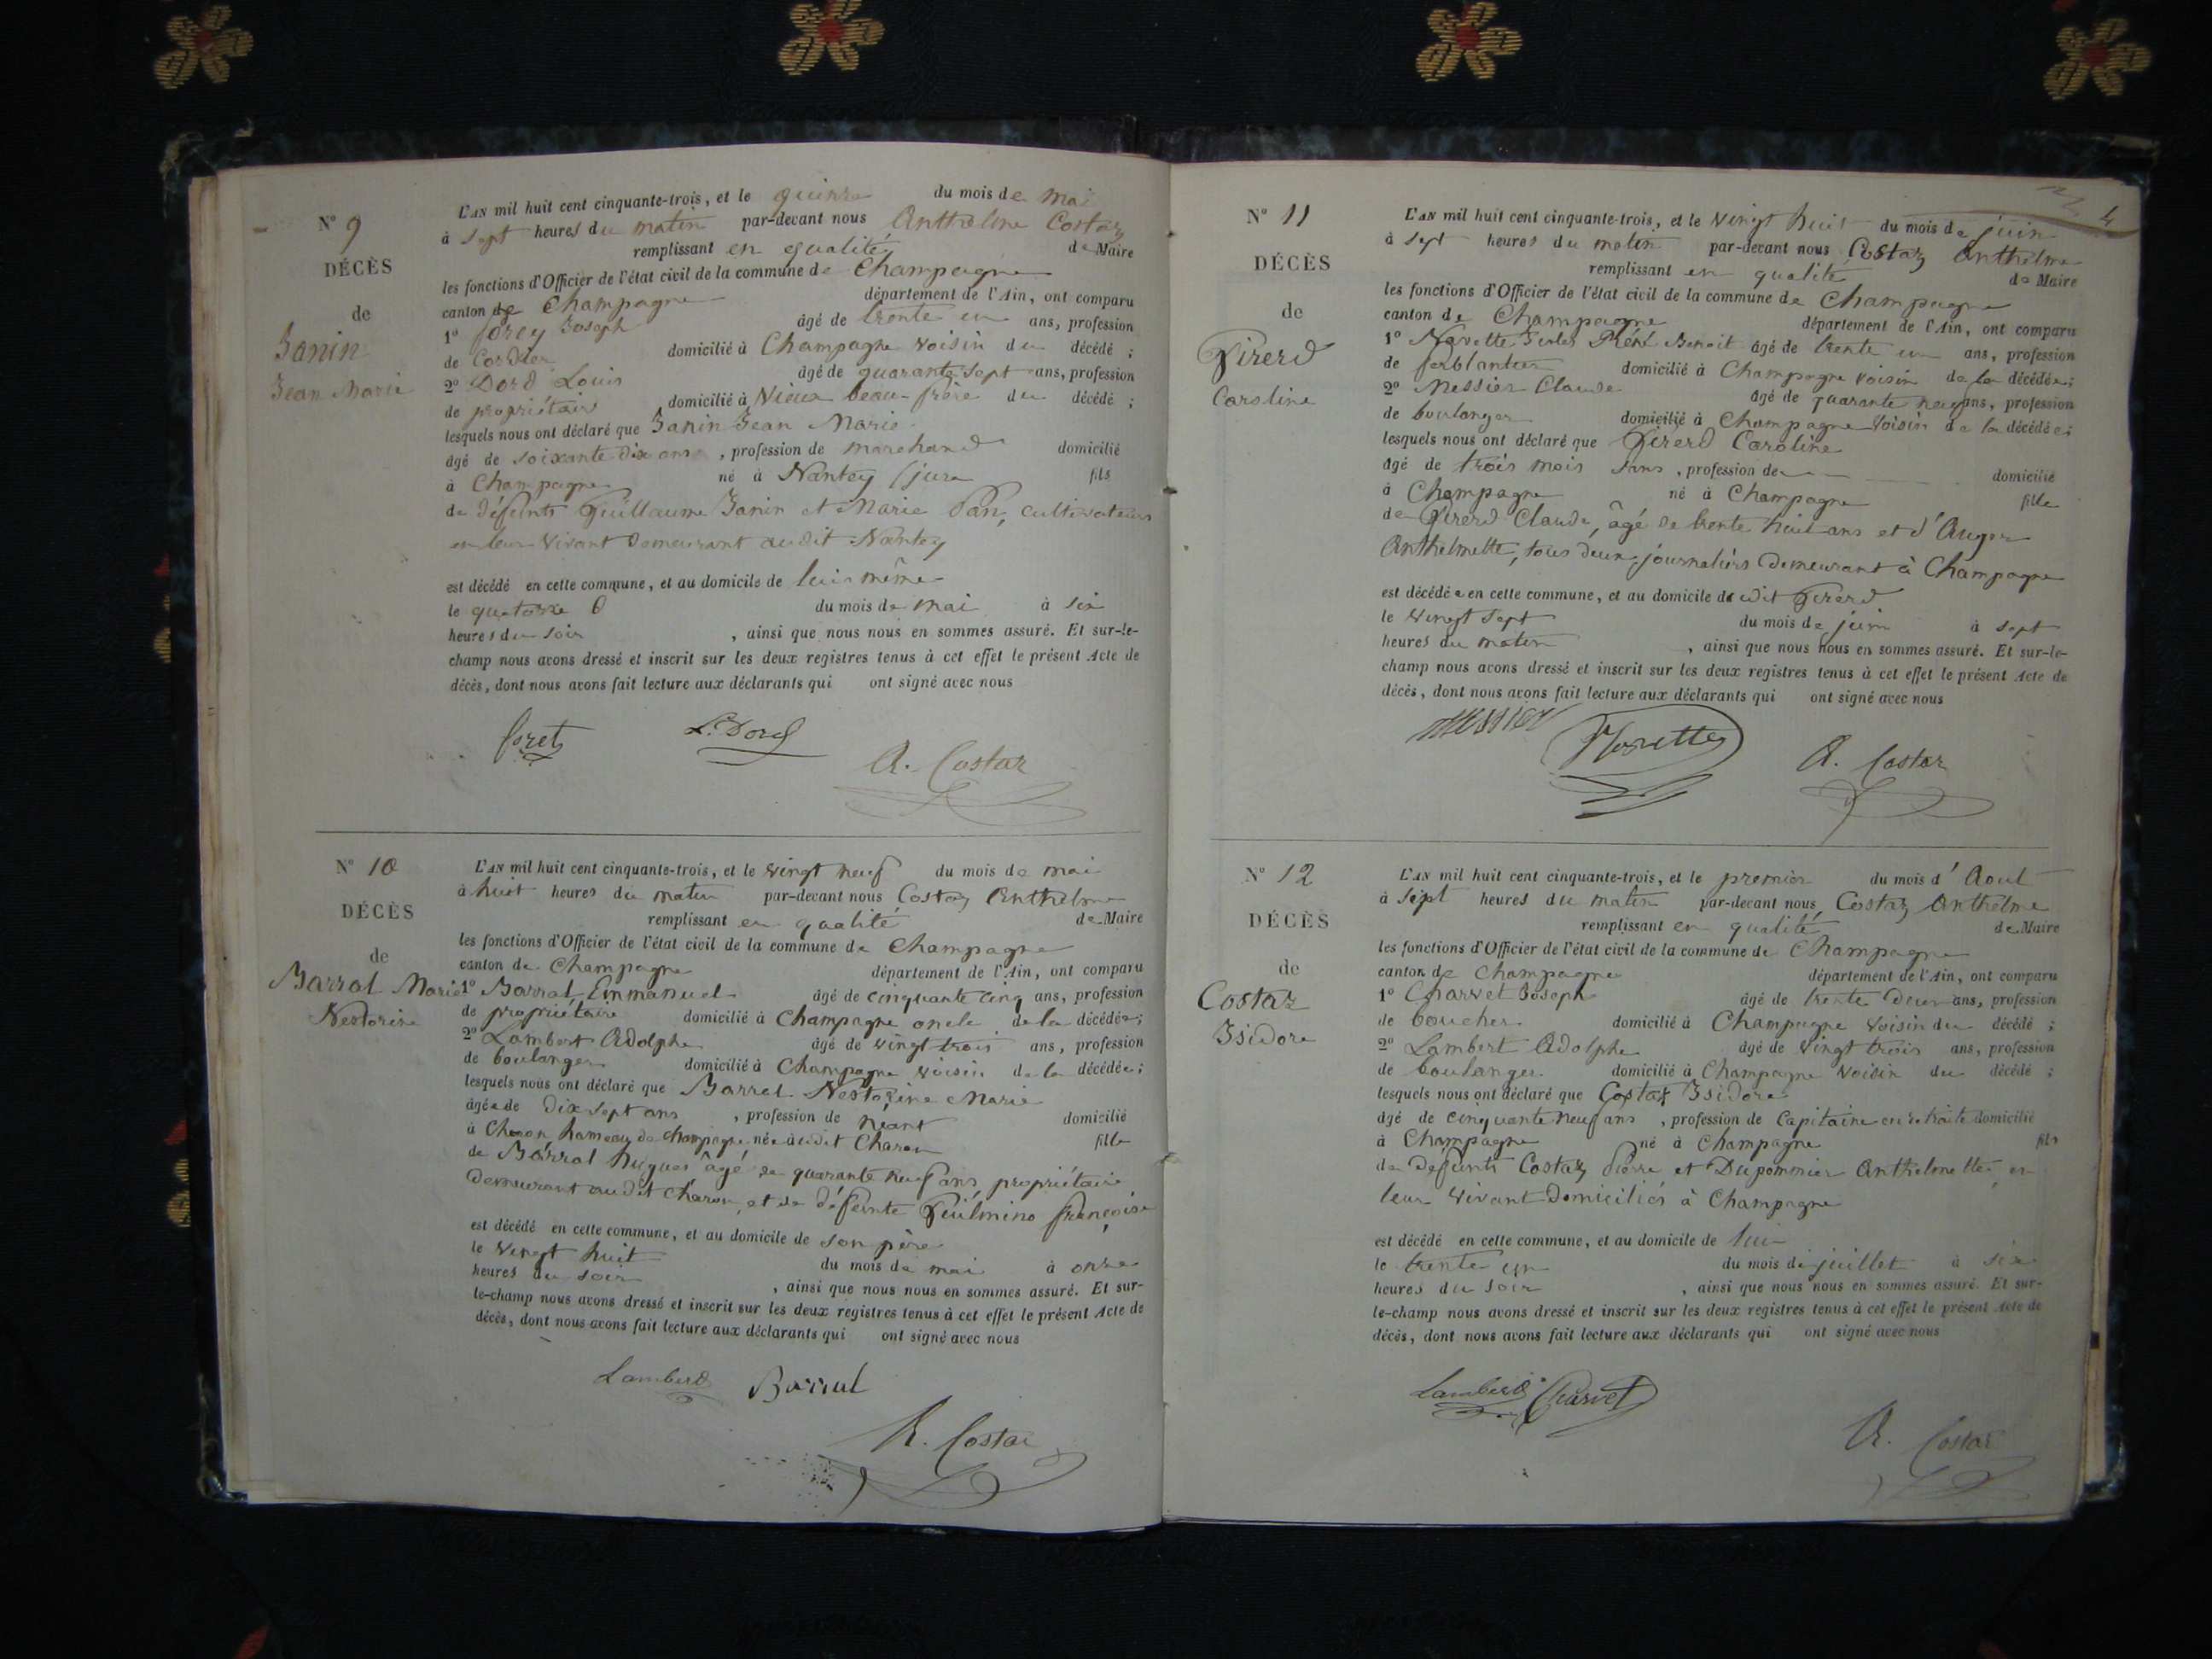 N° 9
DÉCÈS
de
Janin
Jean Marie
L'AN mil huit cent cinquante-trois, et le quinze du mois de mai
à sept heures du matin par-devant nous Anthelme Costaz
remplissant en qualité de Maire
les fonctions d'Officier de l'état civil de la commune de Champagne
canton de Champagne département de l'Ain, ont comparu
1° Joseph âgé de trente un ans, profession
de Cordier domicilié à Champagne voisin du décédé ;
2° Dord Louis âgé de quarante sept ans, profession
de propriétaire domicilié à Vieux beau-frère du décédé ;
lesquels nous ont déclaré que Janin Jean Marie
âgé de soixante dix ans, profession de marchand domicilié
à Champagne né à Nantey (jura fils
de défunts Guillaume Janin et Marie Pan, cultivateurs
en leur vivant demeurant audit Nantey
est décédé en cette commune, et au domicile de lui même
le quatorze du mois de mai à six
heures du soir, ainsi que nous nous en sommes assuré. Et sur-le-
champ nous avons dressé et inscrit sur les deux registres tenus à cet effet le présent Acte de
décès, dont nous avons fait lecture aux déclarants qui ont signé avec nous
foret L. Dord
A. Costaz
N° 10
DÉCÈS
de
Barral Marie
Nestorine
L'AN mil huit cent cinquante-trois, et le vingt neuf du mois de mai
à huit heures du matin par-devant nous Costaz Anthelme
remplissant en qualité de Maire
les fonctions d'Officier de l'état civil de la commune de Champagne
canton de Champagne département de l'Ain, ont comparu
1° Barral Emmanuel âgé de cinquante cinq ans, profession
de propriétaire domicilié à Champagne oncle de la décédée ;
2° Lambert Adolphe âgé de vingt trois ans, profession
de boulanger domicilié à Champagne voisin de la décédée ;
lesquels nous ont déclaré que Barral Nestorine Marie
âgée de dix sept ans, profession de néant domicilié
à Charon hameau de Champagne née audit Charon fille
de Barral hugues âgé de quarante neuf ans, propriétaire
demeurant audit Charon, et de défeinte françoise
est décédé en cette commune, et au domicile de son père
le vingt huit du mois de mai à onze
heures du soir, ainsi que nous nous en sommes assuré. Et sur-
le-champ nous avons dressé et inscrit sur les deux registres tenus à cet effet le présent Acte de
décès, dont nous avons fait lecture aux déclarants qui ont signé avec nous
Lambert Barral
A. Costaz
4
N° 11
DÉCÈS
de
Pirerd
Caroline
L'AN mil huit cent cinquante-trois, et le vingt huit du mois de juin
à sept heures du matin par-devant nous Costaz Anthelme
remplissant en qualité de Maire
les fonctions d'Officier de l'état civil de la commune de Champagne
canton de Champagne département de l'Ain, ont comparu
1° Benoit âgé de trente un ans, profession
de ferblantier domicilié à Champagne voisin de la décédée ;
2° Messier Claude âgé de quarante neuf ans, profession
de boulanger domicilié à Champagne voisin de la décédée ;
lesquels nous ont déclaré que Pirerd Caroline
âgé de trois mois sans, profession de domicilié
à Champagne né à Champagne fille
de Pirerd Claude, âgé de trente huit ans et d'Auger
Anthelmette, tous deux journaliers demeurant à Champagne
est décédée en cette commune, et au domicile dudit Pirerd
le vingt sept du mois de juin à sept
heures du matin, ainsi que nous nous en sommes assuré. Et sur-le-
champ nous avons dressé et inscrit sur les deux registres tenus à cet effet le présent Acte de
décès, dont nous avons fait lecture aux déclarants qui ont signé avec nous
Messier
A. Costaz
N° 12
DÉCÈS
de
Costaz
Isidore
L'AN mil huit cent cinquante-trois, et le premier du mois d'Aout
à sept heures du matin par-devant nous Costaz Anthelme
remplissant en qualité de Maire
les fonctions d'Officier de l'état civil de la commune de Champagne
canton de Champagne département de l'Ain, ont comparu
1° Charvet Joseph âgé de trente deux ans, profession
de boucher domicilié à Champagne voisin du décédé ;
2° Lambert Adolphe âgé de vingt trois ans, profession
de boulanger domicilié à Champagne voisin du décédé ;
lesquels nous ont déclaré que Costaz Isidore
âgé de cinquante neuf ans, profession de Capitaine en retraite domicilié
à Champagne né à Champagne fils
de défunts Costaz Pierre et Dupommier Anthelmette, en
leur vivant domiciliés à Champagne
est décédé en cette commune, et au domicile de lui
le trente un du mois de juillet à six
heures du soir, ainsi que nous nous en sommes assuré. Et sur-
le-champ nous avons dressé et inscrit sur les deux registres tenus à cet effet le présent Acte de
décès, dont nous avons fait lecture aux déclarants qui ont signé avec nous
Lambert Charvet
A. Costaz